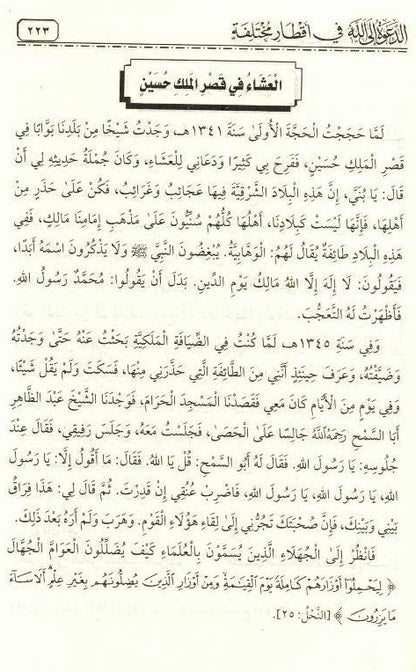 الدعوة إلى الله في أقطار مختلفة
٢٢٣
العَشَاءُ فِي قَصْرِ المَلِكِ حُسَيْنِ
لَمَّا حَجَجْتُ الحَجَّةَ الأُولَى سَنَةَ ١٣٤١هـ، وَجَدْتُ شَيْخًا مِنْ بَلَدِنَا بَوَّابًا فِي
قَصْرِ المَلِكِ حُسَيْنِ، فَفَرِحَ بِي كَثِيرًا وَدَعَانِي لِلْعَشَاءِ، وَكَانَ جُمْلَةُ حَدِيثِهِ لِي أَنْ
قَالَ: يَا بُنَيَّ، إِنَّ هَذِهِ البِلَادَ الشَّرْقِيَّةَ فِيهَا عَجَائِبُ وَغَرَائِبُ، فَكُنْ عَلَى حَذَرٍ مِنْ
أَهْلِهَا، فَإِنَّهَا لَيْسَتْ كَبِلَادِنَا، أَهْلُهَا كُلُّهُمْ سُنِّيُّونَ عَلَى مَذْهَبِ إِمَامِنَا مَالِكٍ، فَفِي
هَذِهِ البِلَادِ طَائِفَةٌ يُقَالُ لَهُمُ: الْوَهَّابِيَّةُ، يُبْغِضُونَ النَّبِيَّ ﷺ وَلَا يَذْكُرُونَ اسْمَهُ أَبَدًا،
فَيَقُولُونَ: لَا إِلَهَ إِلَّا اللهُ مَالِكُ يَوْمِ الدِّينِ. بَدَلَ أَنْ يَقُولُوا: مُحَمَّدٌ رَسُولُ اللهِ.
فَأَظْهَرْتُ لَهُ التَّعَجُّبَ.
وَفِي سَنَةِ ١٣٤٥هـ، لَمَّا كُنْتُ فِي الضِّيَافَةِ المَلَكِيَّةِ بَحَثْتُ عَنْهُ حَتَّى وَجَدْتُهُ
وَضَيَّفْتُهُ، وَعَرَفَ حِينَئِذٍ أَنَّنِي مِنَ الطَّائِفَةِ الَّتِي حَذَّرَنِي مِنْهَا، فَسَكَتَ وَلَمْ يَقُلْ شَيْئًا،
وَفِي يَوْمٍ مِنَ الأَيَّامِ كَانَ مَعِي فَقَصَدْنَا المَسْجِدَ الحَرَامَ، فَوَجَدْنَا الشَّيْخَ عَبْدَ الظَّاهِرِ
أَبَا السَّمْحِ رَحِمَهُ اللهُ جَالِسًا عَلَى الحَصَى، فَجَلَسْتُ مَعَهُ، وَجَلَسَ رَفِيقِي، فَقَالَ عِنْدَ
جُلُوسِهِ: يَا رَسُولَ اللهِ. فَقَالَ لَهُ أَبُو السَّمْحِ: قُلْ يَا اللهُ. فَقَالَ: مَا أَقُولُ إِلَّا: يَا رَسُولَ
اللهِ، يَا رَسُولَ اللهِ، يَا رَسُولَ اللهِ، فَاضْرِبْ عُنُقِي إِنْ قَدِرْتَ. ثُمَّ قَالَ لِي: هَذَا فِرَاقُ
بَيْنِي وَبَيْنِكَ، فَإِنَّ صُحْبَتَكَ تَجُرُّنِي إِلَى لِقَاءِ هَؤُلَاءِ الْقَوْمِ. وَهَرَبَ وَلَمْ أَرَهُ بَعْدَ ذَلِكَ.
فَانْظُرْ إِلَى الجُهَلَاءِ الَّذِينَ يُسَمَّوْنَ بِالْعُلَمَاءِ كَيْفَ يُضَلِّلُونَ الْعَوَامَّ الجُهَّالَ
﴿ لِيَحْمِلُوا أَوْزَارَهُمْ كَامِلَةً يَوْمَ الْقِيَامَةِ وَمِنْ أَوْزَارِ الَّذِينَ يُضِلُّونَهُم بِغَيْرِ عِلْمٍ أَلَا سَاءَ
مَا يَزِرُونَ ﴾ [النَّحْلُ: ٢٥].